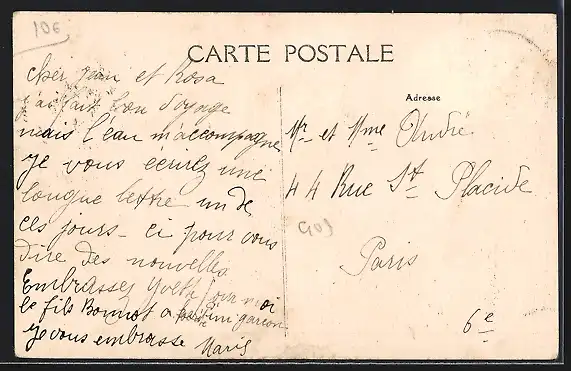 106
CARTE POSTALE
cher et Rosa
j'ai fait bon voyage
mais l'eau m'accompagne
je vous ecrirez une
longue lettre un de
ces jours - ci pour vous
dire des nouvelles
Embrassez pour moi
le fils Bonnot a un garcon
je vous embrasse
Adresse
Mr et Mme André
44 Rue St Placide
Paris
6e